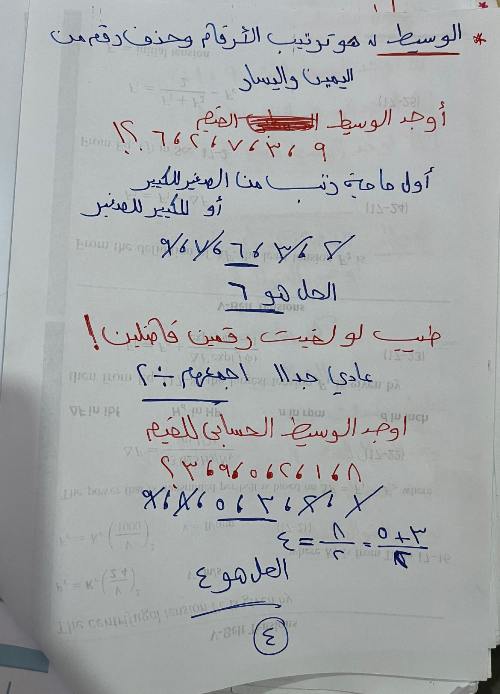 * الوسيط هو ترتيب الأرقام وحذف رقم من
اليمين واليسار
أوجد الوسيط القيم
٩، ٣، ٧، ٢، ٦ ؟!
أول حاجة رتب من الصغير للكبير
أو للكبير للصغير
٢، ٣، ٦، ٧، ٩
الحل هو ٦
طيب لو لقيت رقمين فاضلين!
عادي جدا اجمعهم ÷ ٢
اوجد الوسيط الحسابي للقيم
٨، ١، ٢، ٥، ٩، ٣ ؟
١، ٢، ٣، ٥، ٨، ٩
٣+٥/٢ = ٨/٢ = ٤
الحل هو ٤
٤